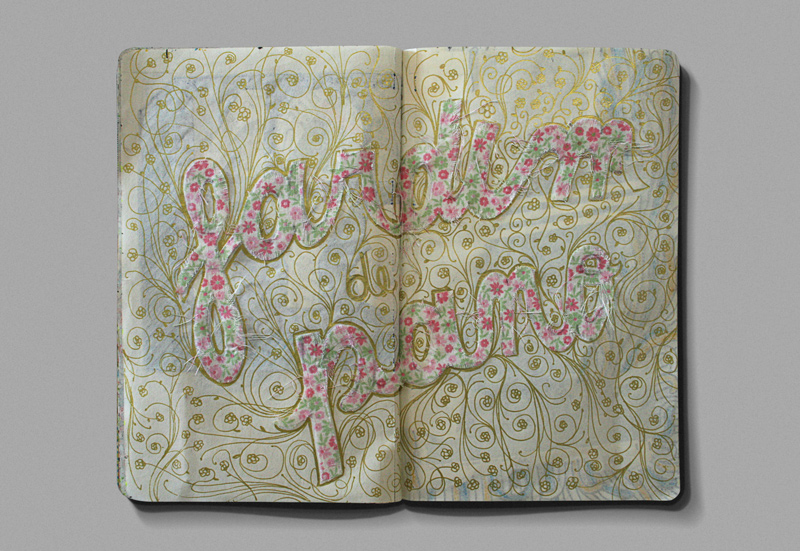 jardim
de
pano